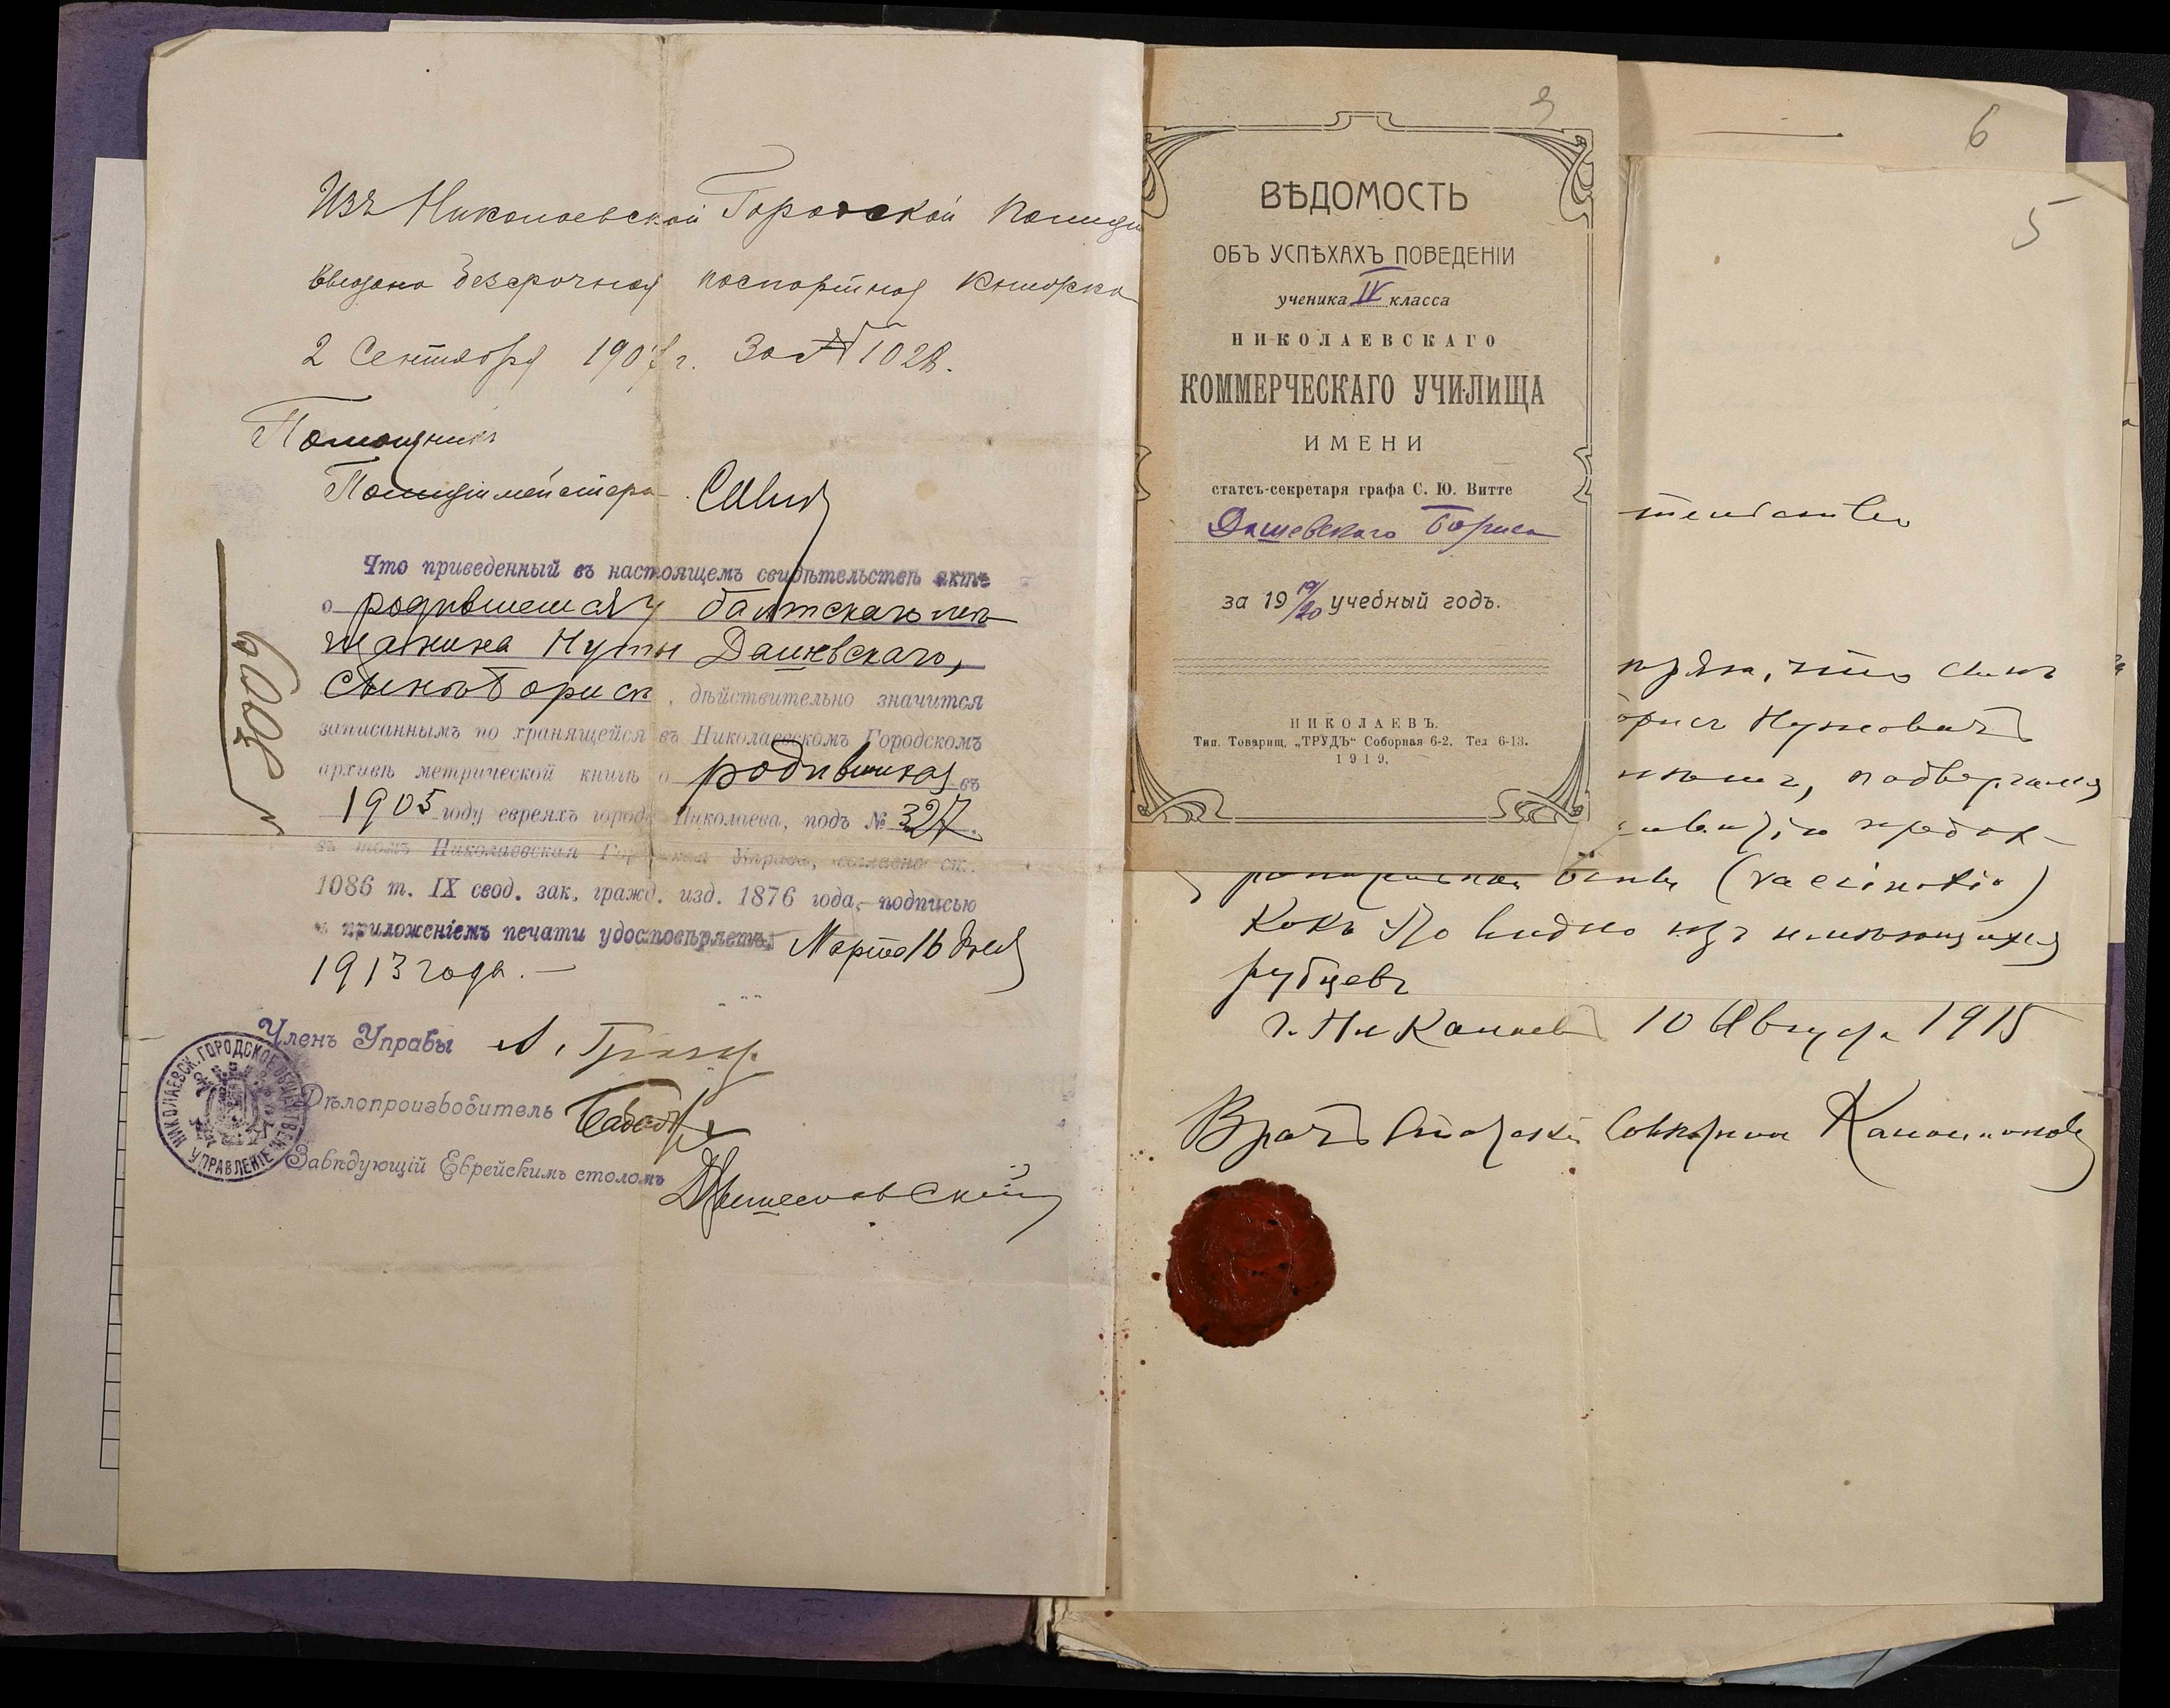 Изъ Николаевской Городской Полиціи
выдана безсрочная паспортная книжка
2 Сентября 1907 г. За № 1028.
Помощникъ
Полиціймейстера
Что приведенный въ настоящемъ свидѣтельствѣ актъ
о родившемся у балтскаго мѣ-
щанина Нуты Дашевскаго,
сынѣ Борисѣ, дѣйствительно значится
записаннымъ по хранящейся въ Николаевскомъ Городскомъ
архивѣ метрической книгѣ о родившихся въ
1905 году евреяхъ города Николаева, подъ № 327.
въ томъ Николаевская Городская Управа, согласно ст.
1086 т. IX свод. зак. гражд. изд. 1876 года, подписью
и приложеніемъ печати удостовѣряетъ, Марта 16 дня
1913 года.
№ 3009
Членъ Управы
Дѣлопроизводитель
Завѣдующій Еврейскимъ столомъ
НИКОЛАЕВСК. ГОРОДСКОЕ ОБЩЕСТВЕН. УПРАВЛЕНІЕ
3
ВѢДОМОСТЬ
ОБЪ УСПѢХАХЪ ПОВЕДЕНІИ
ученика IV класса
НИКОЛАЕВСКАГО
КОММЕРЧЕСКАГО УЧИЛИЩА
ИМЕНИ
статсъ-секретаря графа С. Ю. Витте
Дашевскаго Бориса
за 19 19/20 учебный годъ.
НИКОЛАЕВЪ.
Тип. Товарищ. „ТРУДЪ“ Соборная 6-2. Тел 6-13.
1919.
6
5
тельство
что сынъ
орисъ Нутовичъ
подвергался
предох-
ранительной оспы (vaccinatio)
какъ это видно изъ имѣющихся
рубцевъ
г. Николаевъ 10 Августа 1915
Врачъ